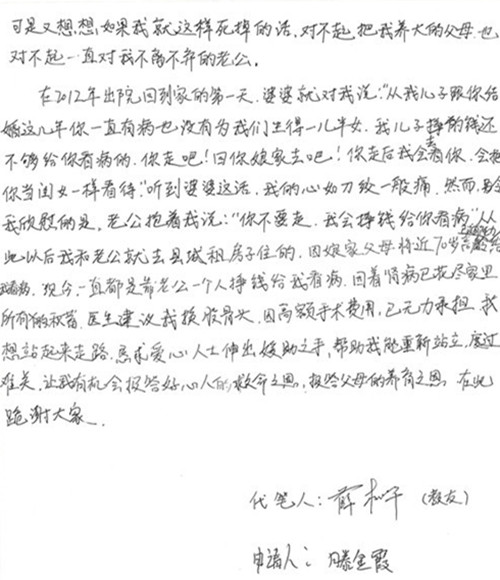 可是又想,想如果我就这样死掉的话,对不起把我养大的父母,也
对不起一直对我不离不弃的老公。
在2012年出院回到家的第一天,婆婆就对我说:“从我儿子跟你结
婚这几年你一直有病也没有为我们生得一儿半女,我儿子挣的钱还
不够给你看病的,你走吧!回你娘家去吧!你走后我会去看你,会把
你当闺女一样看待。”听到婆婆这话,我的心如刀绞一般痛,然而,
我欣慰的是,老公抱着我说:“你不要走,我会挣钱给你看病”从
此以后我和老公就去县城租房子住的,因娘家父母将近70岁高龄
现今,一直都是靠老公一个人挣钱给我看病,因着肾病已花尽家里
所有的积蓄,医生建议我换股骨头,因高额手术费用,已无力承担,我
想站起来走路,恳求爱心人士伸出援助之手,帮助我能重新站立,度过
难关,让我有机会报答好心人的救命之恩,报答父母的养育之恩,在此
跪谢大家.
代笔人:薛和平(教友)
申请人:滕金霞